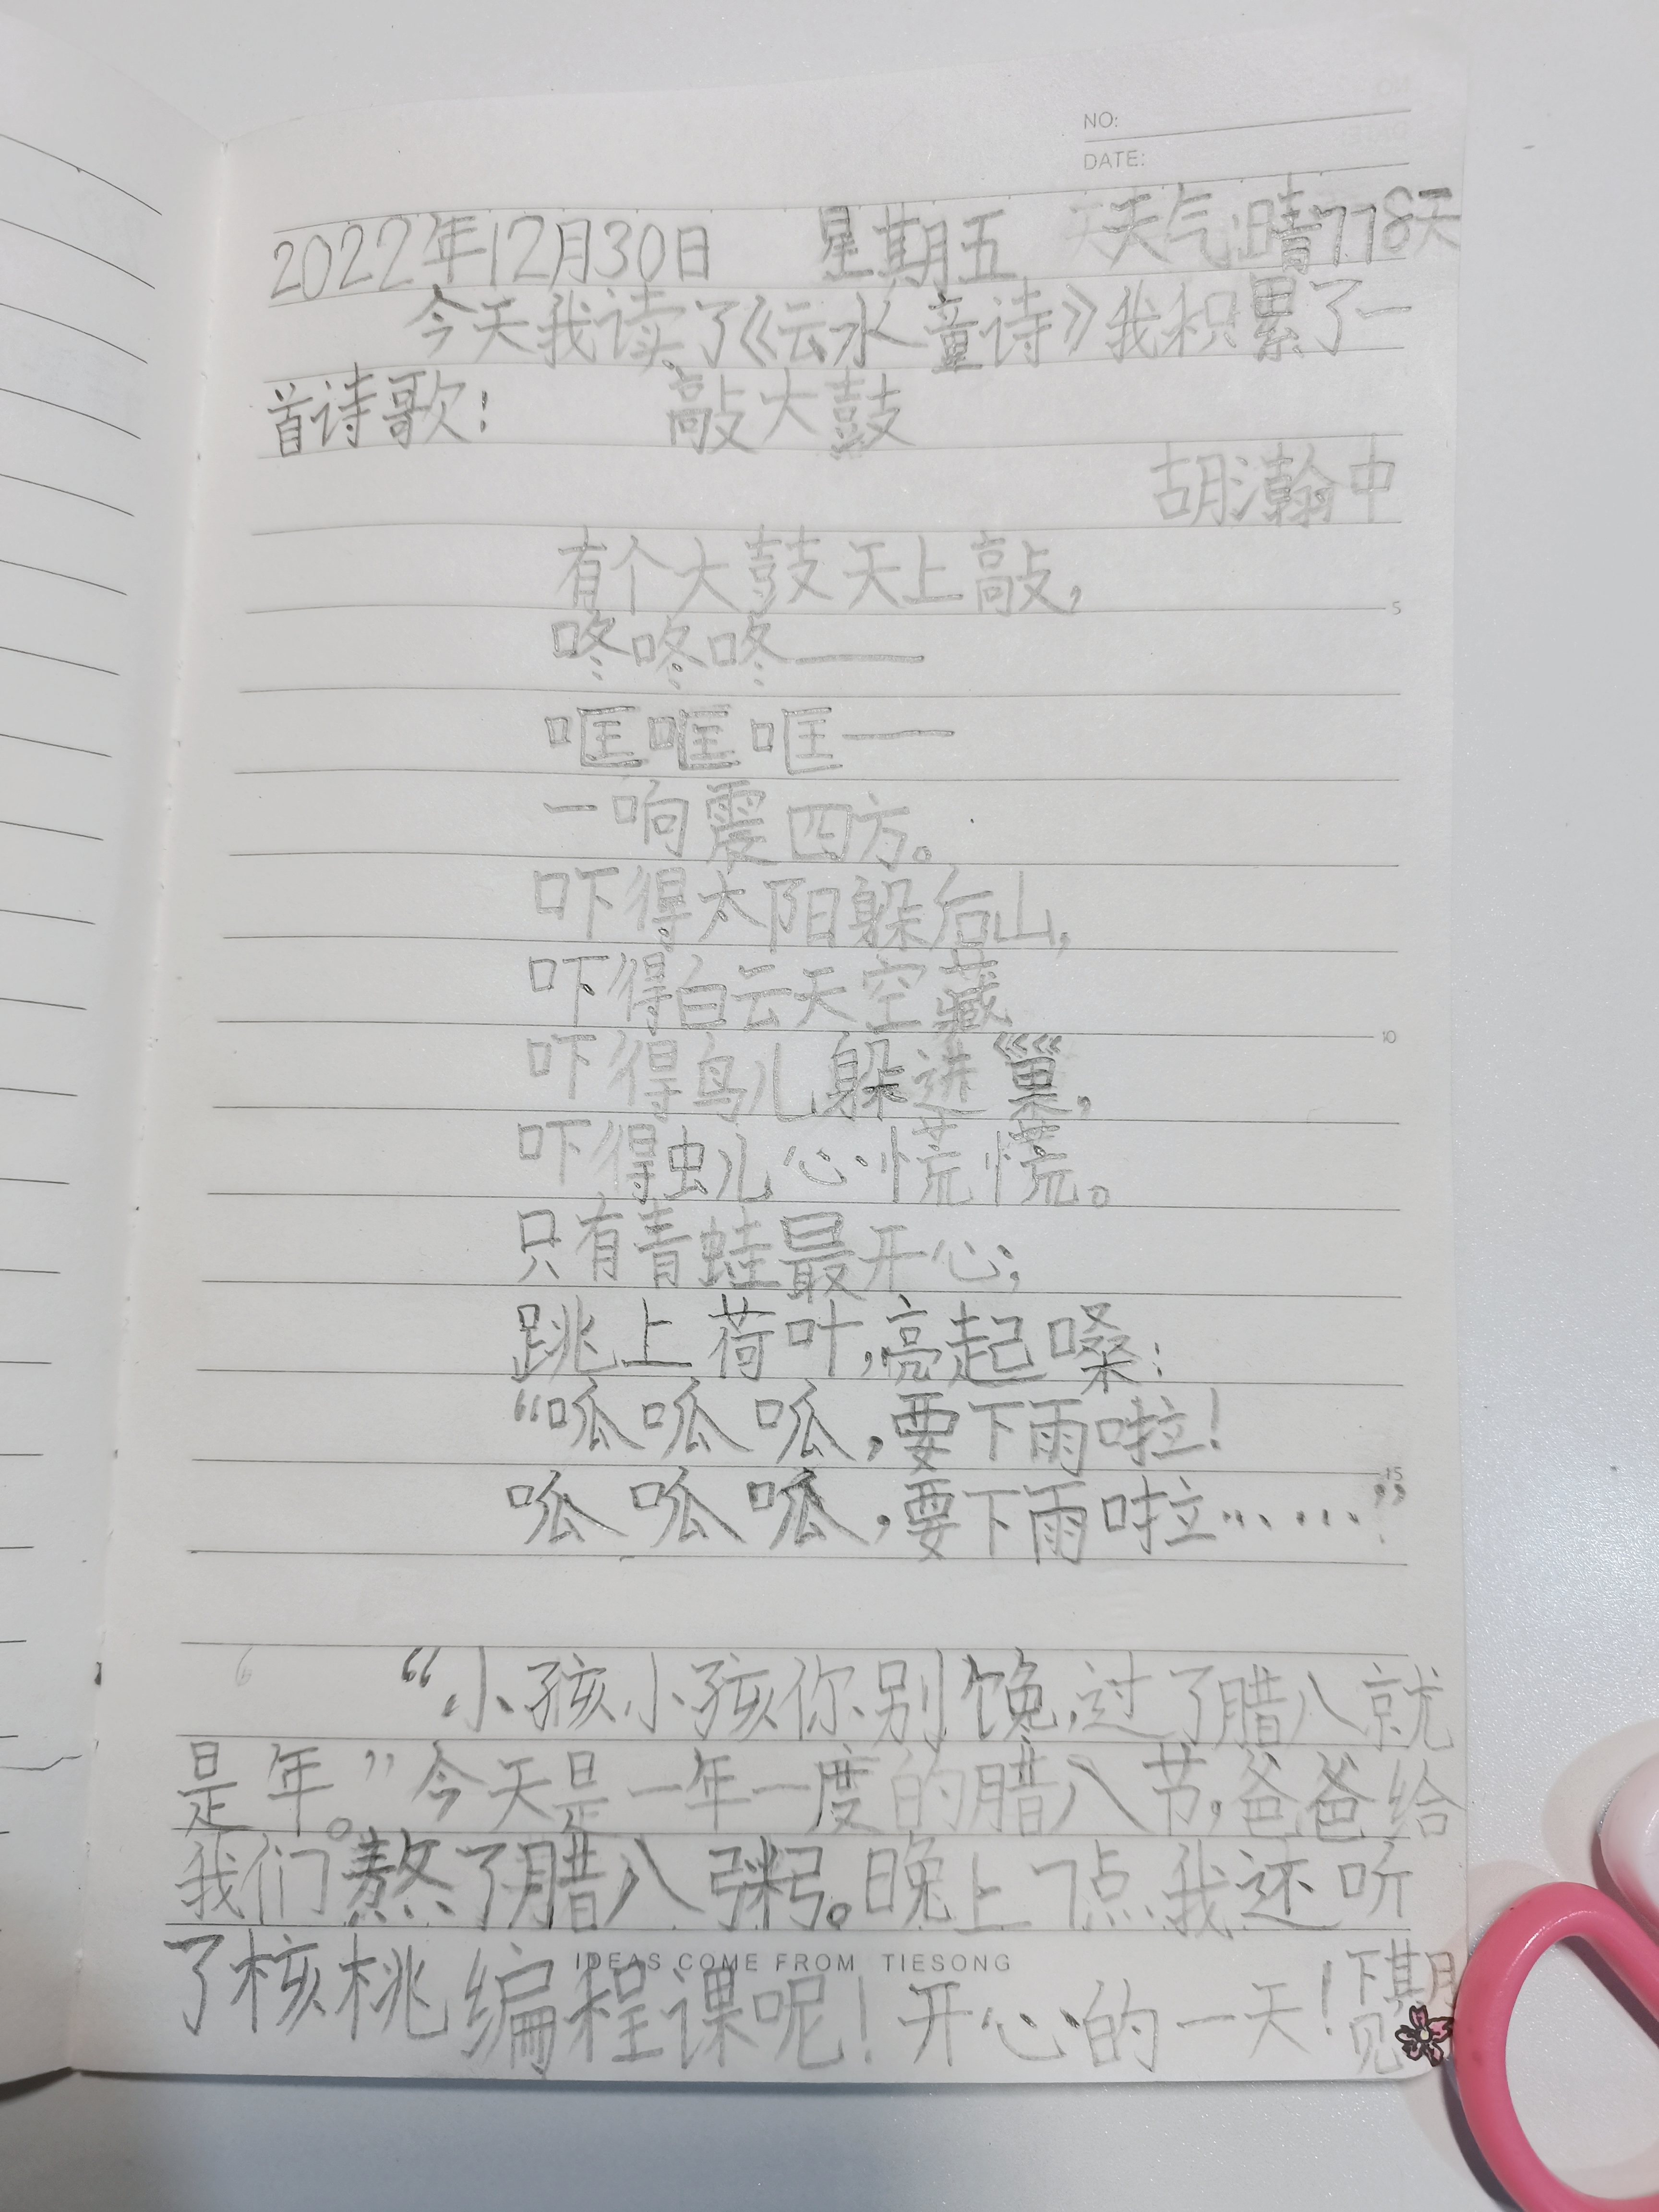 NO:
DATE:
2022年12月30日 星期五 天气:晴778天
今天我读了《云水童诗》我积累了一
首诗歌: 敲大鼓
胡瀚中
有个大鼓天上敲,
5
咚咚咚——
哐哐哐——
一响震四方。
吓得太阳躲后山,
吓得白云天空藏
10
吓得鸟儿躲进巢,
吓得虫儿心慌慌。
只有青蛙最开心;
跳上荷叶,亮起嗓:
“呱呱呱,要下雨啦!
15
呱呱呱,要下雨啦……”
“小孩小孩你别馋,过了腊八就
是年。”今天是一年一度的腊八节,爸爸给
我们熬了腊八粥。晚上7点我还听
了核桃编程课呢!开心的一天!下期见
IDEAS COME FROM TIESONG